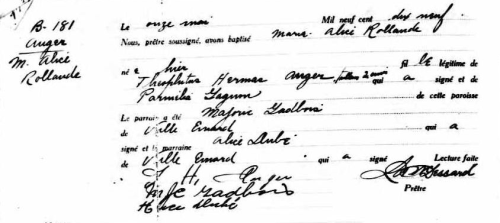 B-181
Auger
M. Alice
Rollande
Le onze mai Mil neuf cent dix neuf.
Nous, prêtre soussigné, avons baptisé Marie Alice Rollande
né e hier fil le légitime de
Hermas Auger, qui a signé et de
Parmélia Gagnon de cette paroisse
Le parrain a été Gadbois
de Ville Emard qui a
signé et la marraine Alice Dubé
de Ville Emard qui a signé Lecture faite
H. Auger
Gadbois
Alice Dubé
Prêtre